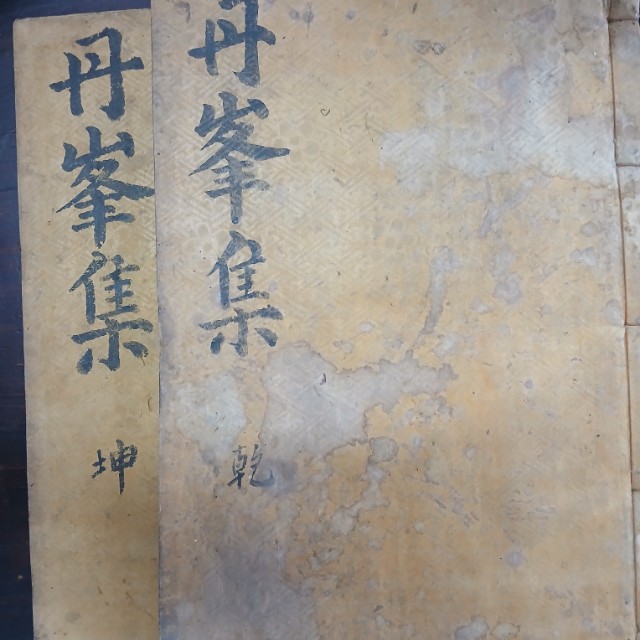 丹峯集
乾
丹峯集
坤